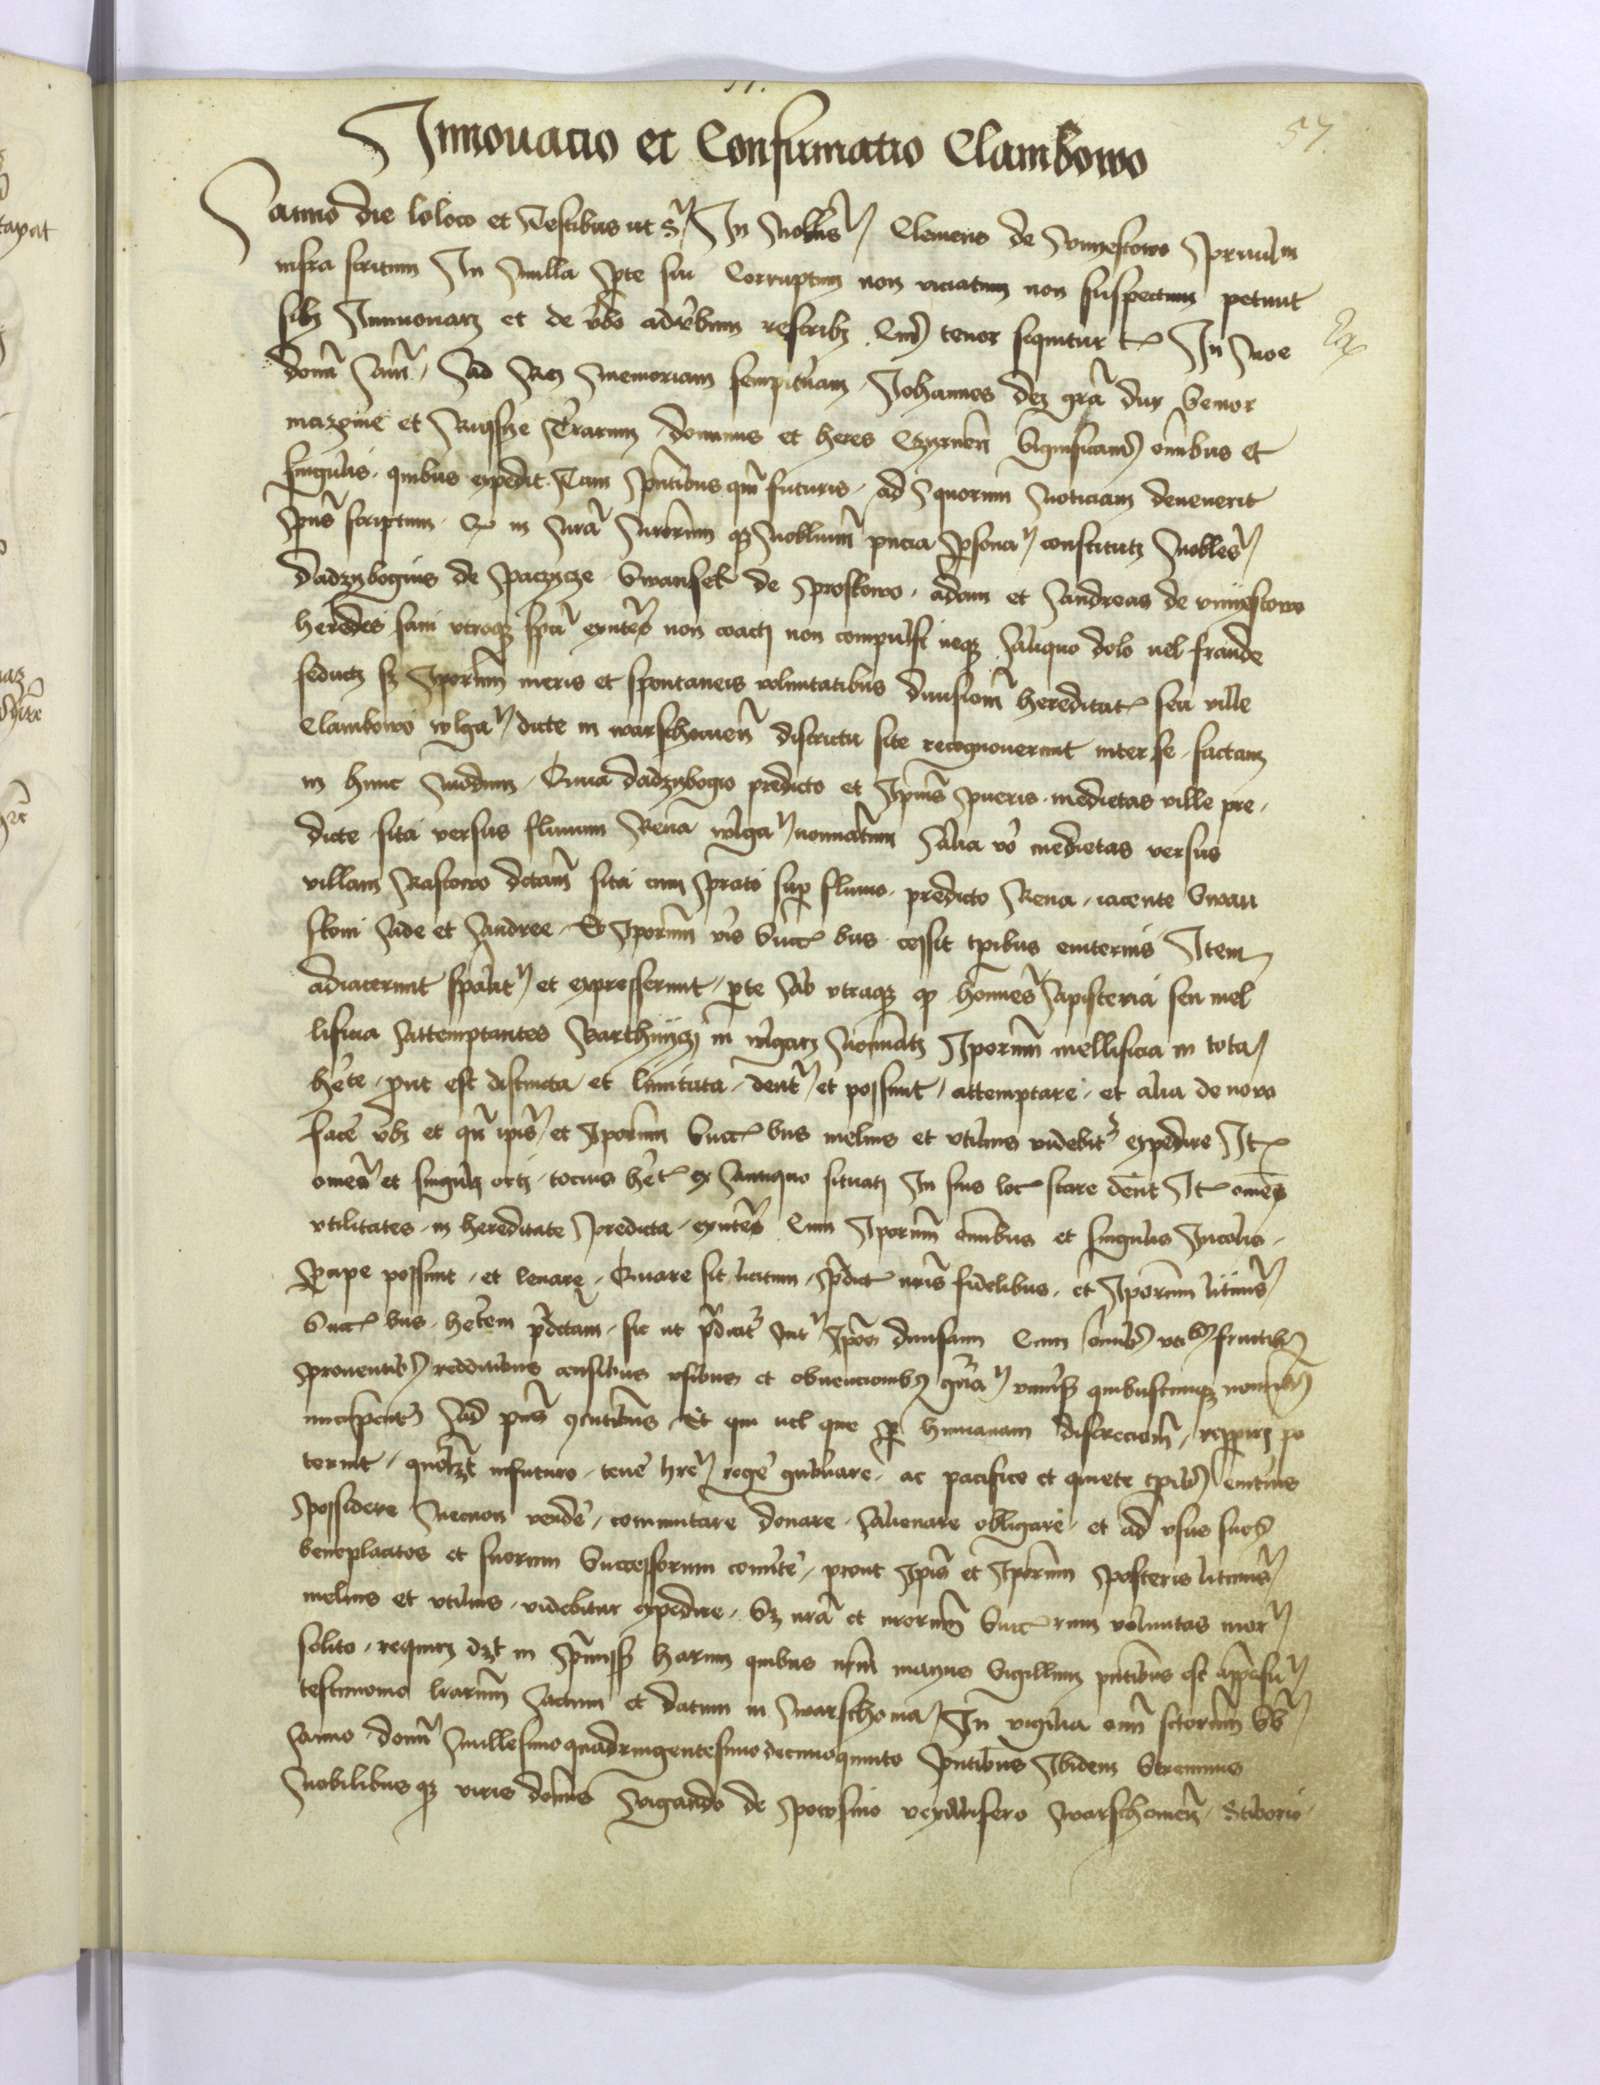 57
Innouacio et Confirmatio Clambowo
Anno die loloco et Testibus ut sr In Nobilis Clemens de Vnyestowo Priuilm
infra scriptum In Nulla Parte sui Corruptum non viciatum non suspectum petiuit
sibi Innouari et de vbo adverbum rescribi Cuius tenor sequitur In Noe
domi Amen Ad Rei memoriam sempiternam Johannes dei gra dux Senior
mazouie et Russye Terarum dominus et heres Czyrnen Significamus omnibus et
singulis quibus expedit Tam Pntibus qm futuris ad quorum Noticiam deuenerit
Pns scriptum Q in Nra Nrorum qz Nobilium pncia Psonar constituti Nobiles
Dadzybogius de Paczycze Swansek de Proskowo adam et Andreas de vnyestowo
heredes sani vtroqz spu exntes non coacti non compulsi neqz Aliquo dolo uel fraude
seducti sz Iporum meris et spontaneis voluntatibus diuisiom hereditat seu ville
Clambowo wlgar dicte in warschouien districtu site recognouerunt inter se factam
in hunc Modum Quia dadzybogio predicto et Ipius pueris medietas ville pre
dicte sita versus fluuium Rena wlgar nominatum Alia vo medietas versus
villam Rastowo dctam sita cum Prato sup fluuio predicto Rena iacente Swan
skoni Ade et Andree Et Iporum vis Succ bus cessit tpibus euiternis Item
adiacerunt spalit et expresserunt pte Ab vtraqz q homines Apisteria seu mel
lificia Attemptantes Barthnyczi in wlgari Nominati Iporum mellificia in tota
hete put est distincta et limitata dent et possunt attemptare et alia de novo
face vbi et qn ipis et Iporum Succ bus melius et vtilius videbit expedire It
omes et singuli orti tocius het ex Antiquo situati In suis loc stare dent It omes
vtilitates in hereditate Predicta exntes Cum Iporum omnibus et singulis Incolis
Pcipe possunt et leuare Quare sit licitum pdict nris fidelibus et Iporum litimis
Succ bus hetem pdctam sic ut pdicit Int Ipos diuisam Cum omibus vtibus fructibus
Prouentibus redditibus censibus vsibus et obuencionibus gnar vniuis quibuscunqz nominibus
nuncupentur Ad pns Et qui uel que P humanam discreciom reperiri po
terunt quolzt infuturo tene hre rege gubnare ac pacifice et quiete tpibus euitnis
Possidere Necnon vende commutare donare Alienare obligare et ad vsus suos
beneplacitos et suorum Successorum conute prout Ipis et Iporum Posteris litimis
melius et vtilius videbitur expedire Sz nra et nrorum Succ rum voluntas mor
solito requiri dzt in Pmissis Harum quibus nrm maius Sigillum pntibus est appesu
testimonio lrarum Actum et datum in Warschouia In vigilia omn sctorum Sb
Anno domi Millesimo quadringentesimo decimoquinto Pntibus Ibidem Strennuis
Nobilibus qz viris domis Wigando de Powsino vexillifero Warschouien Stiborio